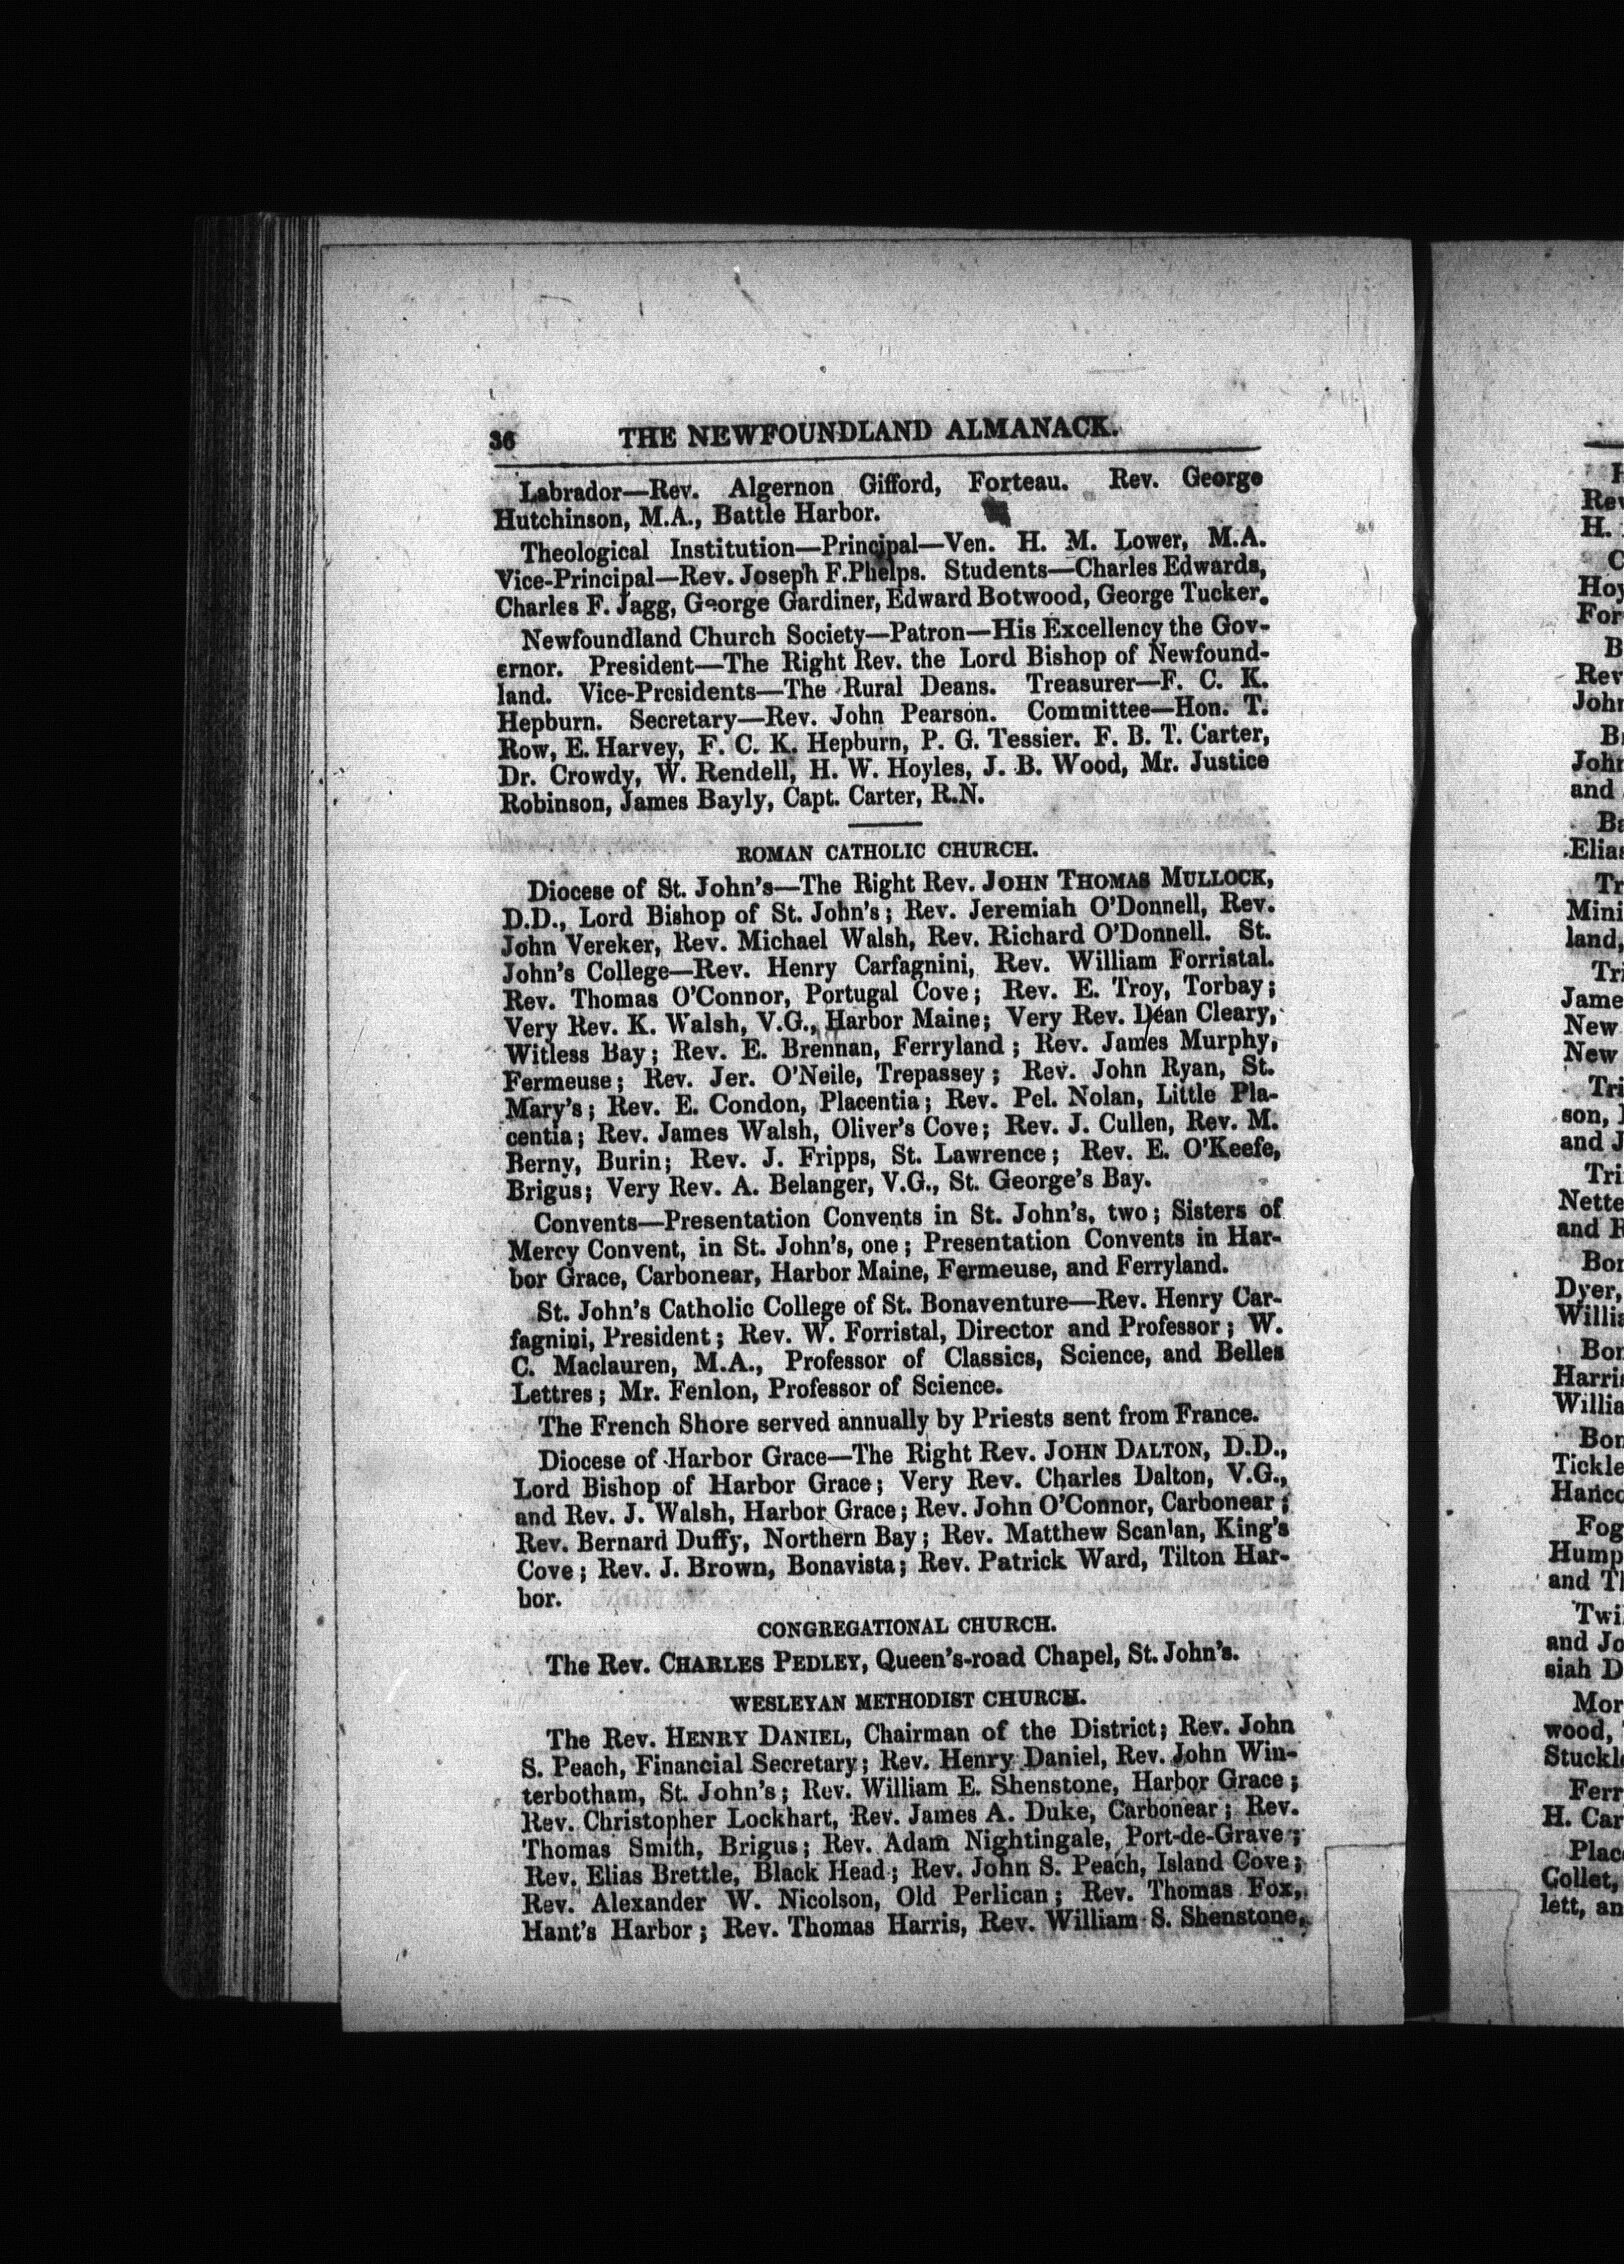 36 THE NEWFOUNDLAND ALMANACK.
Labrador—Rev. Algernon Gifford, Forteau. Rev. George
Hutchinson, M.A., Battle Harbor.
Theological Institution—Principal—Ven. H. M. Lower, M.A.
Vice-Principal—Rev. Joseph F. Phelps. Students—Charles Edwards,
Charles F. Jagg, George Gardiner, Edward Botwood, George Tucker.
Newfoundland Church Society—Patron—His Excellency the Gov-
ernor. President—The Right Rev. the Lord Bishop of Newfound-
land. Vice-Presidents—The Rural Deans. Treasurer—F. C. K.
Hepburn. Secretary—Rev. John Pearson. Committee—Hon. T.
Row, E. Harvey, F. C. K. Hepburn, P. G. Tessier. F. B. T. Carter,
Dr. Crowdy, W. Rendell, H. W. Hoyles, J. B. Wood, Mr. Justice
Robinson, James Bayly, Capt. Carter, R.N.
ROMAN CATHOLIC CHURCH.
Diocese of St. John's—The Right Rev. JOHN THOMAS MULLOCK,
D.D., Lord Bishop of St. John's; Rev. Jeremiah O'Donnell, Rev.
John Vereker, Rev. Michael Walsh, Rev. Richard O'Donnell. St.
John's College—Rev. Henry Carfagnini, Rev. William Forristal.
Rev. Thomas O'Connor, Portugal Cove; Rev. E. Troy, Torbay;
Very Rev. K. Walsh, V.G., Harbor Maine; Very Rev. Dean Cleary,
Witless Bay; Rev. E. Brennan, Ferryland; Rev. James Murphy,
Fermeuse; Rev. Jer. O'Neile, Trepassey; Rev. John Ryan, St.
Mary's; Rev. E. Condon, Placentia; Rev. Pcl. Nolan, Little Pla-
centia; Rev. James Walsh, Oliver's Cove; Rev. J. Cullen, Rev. M.
Berny, Burin; Rev. J. Fripps, St. Lawrence; Rev. E. O'Keefe,
Brigus; Very Rev. A. Belanger, V.G., St. George's Bay.
Convents—Presentation Convents in St. John's, two; Sisters of
Mercy Convent, in St. John's, one; Presentation Convents in Har-
bor Grace, Carbonear, Harbor Maine, Fermeuse, and Ferryland.
St. John's Catholic College of St. Bonaventure—Rev. Henry Car-
fagnini, President; Rev. W. Forristal, Director and Professor; W.
C. Maclauren, M.A., Professor of Classics, Science, and Belles
Lettres; Mr. Fenlon, Professor of Science.
The French Shore served annually by Priests sent from France.
Diocese of Harbor Grace—The Right Rev. JOHN DALTON, D.D.,
Lord Bishop of Harbor Grace; Very Rev. Charles Dalton, V.G.,
and Rev. J. Walsh, Harbor Grace; Rev. John O'Connor, Carbonear;
Rev. Bernard Duffy, Northern Bay; Rev. Matthew Scanlan, King's
Cove; Rev. J. Brown, Bonavista; Rev. Patrick Ward, Tilton Har-
bor.
CONGREGATIONAL CHURCH.
The Rev. CHARLES PEDLEY, Queen's-road Chapel, St. John's.
WESLEYAN METHODIST CHURCH.
The Rev. HENRY DANIEL, Chairman of the District; Rev. John
S. Peach, Financial Secretary; Rev. Henry Daniel, Rev. John Win-
terbotham, St. John's; Rev. William E. Shenstone, Harbor Grace;
Rev. Christopher Lockhart, Rev. James A. Duke, Carbonear; Rev.
Thomas Smith, Brigus; Rev. Adam Nightingale, Port-de-Grave;
Rev. Elias Brettle, Black Head; Rev. John S. Peach, Island Cove;
Rev. Alexander W. Nicolson, Old Perlican; Rev. Thomas Fox,
Hant's Harbor; Rev. Thomas Harris, Rev. William S. Shenstone,
H
Rev
H.
C
Hoy
For
B
Rev
John
Br
John
and
Ba
Elias
Tr
Mini
land,
Tri
Jame
New
New
Tri
son,
and J
Tri
Nette
and
Bon
Dyer,
Willia
Bon
Harris
Willia
Bon
Tickle
Hanco
Fog
Hump
and Th
Twi
and Jo
siah D
Mor
wood,
Stuckl
Ferr
H. Car
Plac
Collet,
lett, an